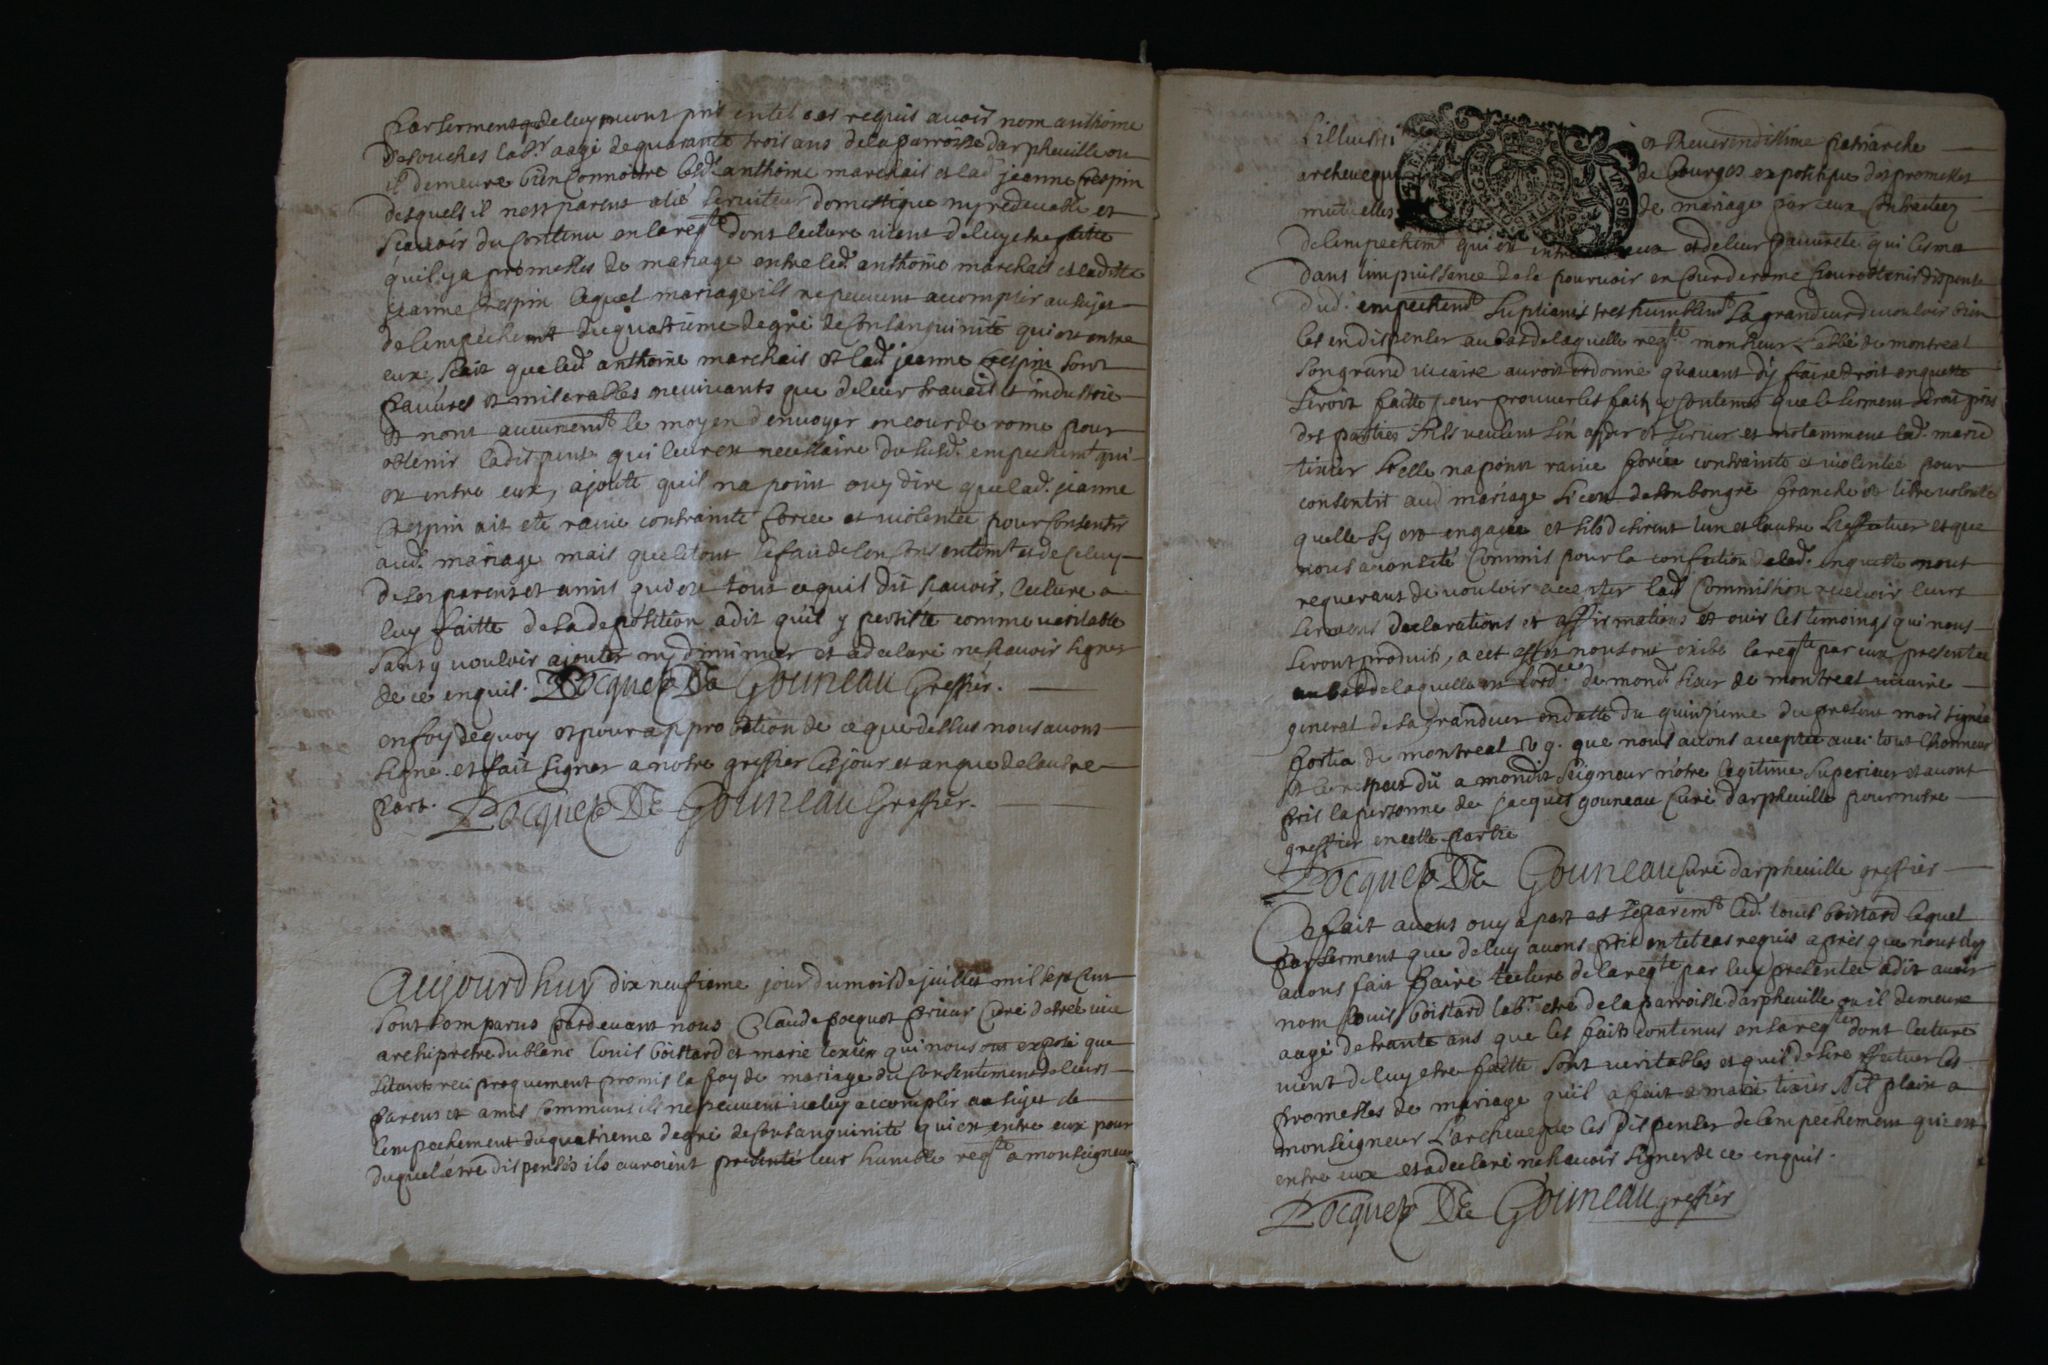 par serment que de luy avons pris en tel cas requis avoir nom anthoine
desouches lab.r aagé de quarante trois ans de la parroisse darpheuille ou
il demeure bien connoitre led. anthoine marchais et lad. jeanne Crespin
desquels il nest parent alié serviteur domestique ny redevable et
scavoir du contenu en la req.te dont lecture vient de luy etre faitte
quil y a promesses de mariage entre led. anthoine marchais et ladite
jeanne Crespin lequel mariage ils ne peuvent accomplir au sujet
de lempechem.t du quatrieme degré de consanguinité qui est entre
eux scait que led. anthoine marchais et lad. jeanne Crespin sont
pauvres et miserables ne vivants que de leur travail et industrie
et nont aucunem.t le moyen denvoyer en cour de rome pour
obtenir la dispense qui leur est necessaire du susd. empechem.t qui
est entre eux, ajoute quil na point ouy dire que lad. jeanne
Crespin ait eté ravie contrainte forcée et violentée pour consentir
aud. mariage mais que le tout se fait de son consentem.t et de celuy
de ses parents et amis qui est tout ce quil dit scavoir, lecture a
luy faitte de sa deposition a dit quil y persiste comme veritable
sans y vouloir ajouter ny diminuer et a declaré ne scavoir signer
de ce enquis. Pocquet Gouneau Greffier.
en foy de quoy et pour approbation de ce que dessus nous avons
signé et fait signer a notre greffier les jour et an que de lautre
part. Pocquet Gouneau Greffier.
Aujourdhuy dix neufieme jour du mois de juillet mil sept cent
sont comparus pardevant nous Claude pocquet prieur curé
archipretre du blanc louis boistard et marie texier qui nous ont exposé que
setants reciproquement promis la foy de mariage du consentement de leurs
parens et amis communs ils ne peuvent iceluy accomplir au sujet de
lempechement du quatrieme degré de consanguinité qui est entre eux pour
duquel étre dispensés ils auroient presenté leur humble req.te a monseigneur
Lillustri et Reverendissime patriarche
archeveque de bourges expositive des promesses
mutuelles de mariage par eux contractées
de lempechem.t qui est entre eux et de leur pauvreté qui les met
dans limpuissance de se pourvoir en cour de rome pour obtenir dispense
dud. empechem.t supliants tres humblem.t sa grandeur de vouloir bien
les en dispenser au bas de laquelle req.te monsieur Labbé de montreal
son grand vicaire auroit ordonné quavant dy faire droit enqueste
seroit faitte pour prouver les faits y contenus que le serment seroit pris
des parties sils veulent sen aider et servir et notamment lad. marie
tixier si elle na point ravie forcée contrainte et violentée pour
consentir aud mariage si cest de son bon gré franche et libre volonté
quelle sy est engagée et sils desirent lun et lautre leffectuer et que
nous avons été commis pour la confection de lad. enqueste nous
requerant de vouloir accepter lad. commission recevoir leurs
sermens declarations et affirmations et ouir les temoings qui nous
seront produits, a cet effet nous ont exibé la req.te par eux presentée
au bas de laquelle est lord.ce de mond. sieur de montreal vicaire
general de sa grandeur en datte du quinzieme du present mois signée
fortia de montreal v. g. que nous avons acceptée avec tout lhonneur
et le respect dû a mondit seigneur notre legitime superieur et avons
pris la personne de jacques gouneau curé darpheuille pour notre
greffier en cette partie
Pocquet Gouneau curé darpheuille greffier
Ce fait avons ouy a part et séparem.t led. louis boistard lequel
par serment que de luy avons pris en tel cas requis apres que nous luy
avons fait faire lecture de la req.te par eux presentée a dit avoir
nom louis boistard lab.r etre de la parroisse darpheuille ou il demeure
aagé de trante ans que les faits contenus en la req.te dont lecture
vient de luy etre faitte sont veritables et quil desire effectuer les
promesses de mariage quil a fait a marie tixier sil plait a
monseigneur Larcheveque les dispenser de lempechement qui est
entre eux et a declaré ne scavoir signer de ce enquis.
Pocquet Gouneau greffier